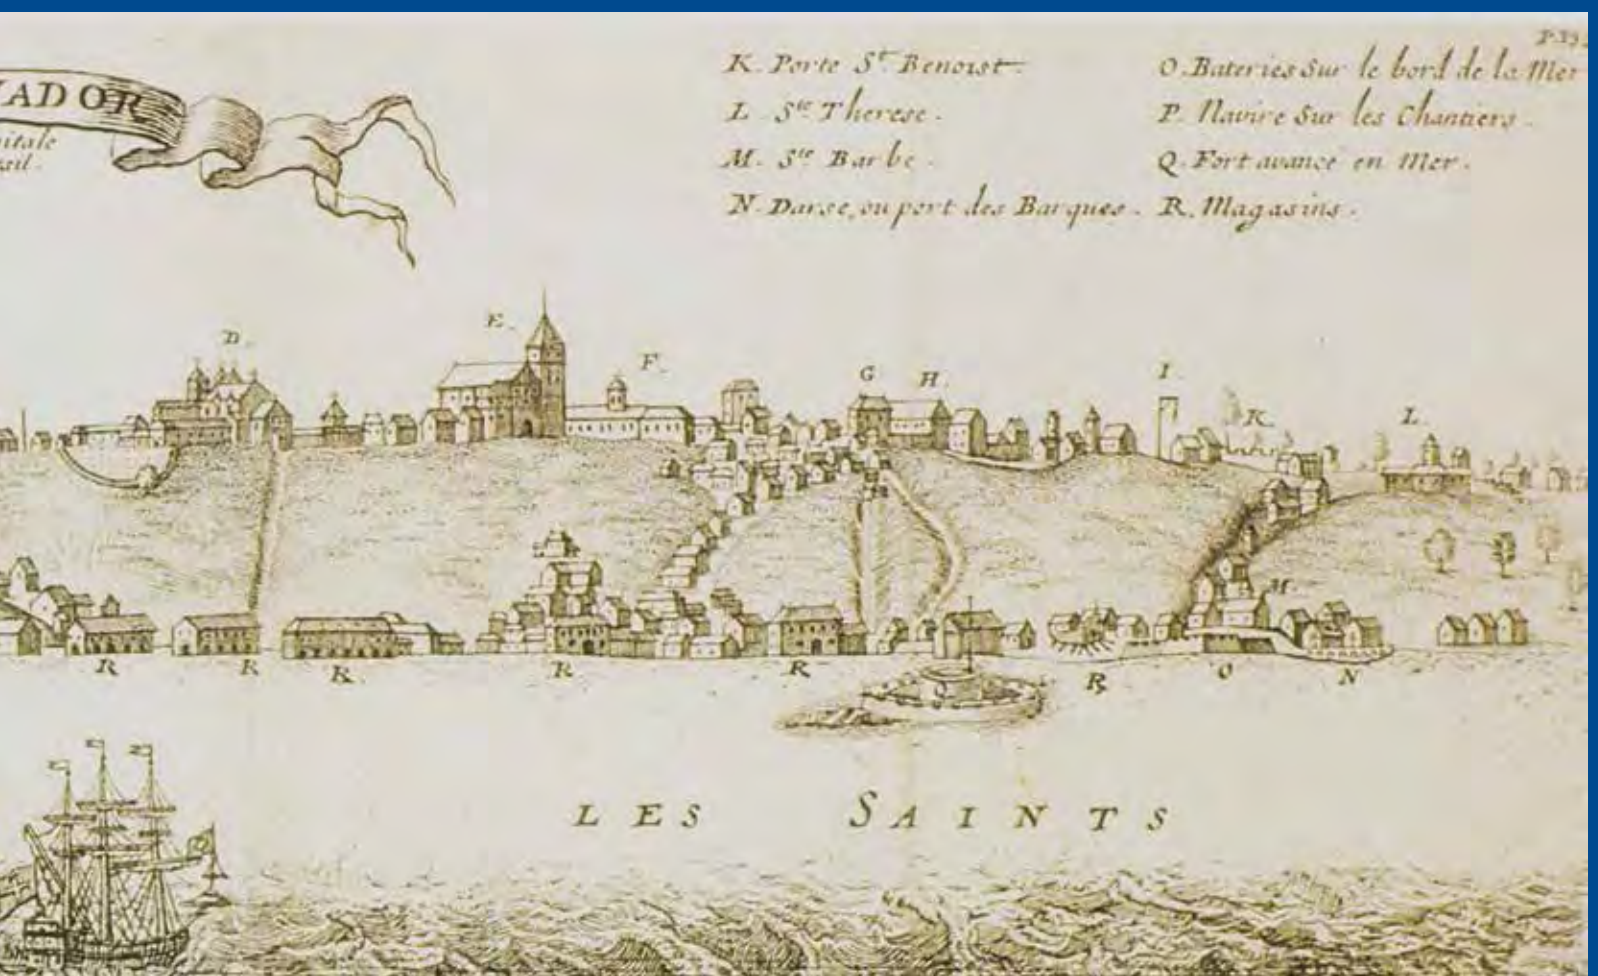 P.19
VADOR
itale
sil.
K. Porte S.t Benoist.
L. S.te Therese.
M. S.te Barbe.
N. Darse, ou port des Barques.
O. Bateries Sur le bord de la Mer
P. Navire Sur les Chantiers.
Q. Fort avancé en Mer.
R. Magasins.
D.
E.
F.
G
H.
I
K.
L.
M
R
R
R
R
R
R
O
N
LES SAINTS